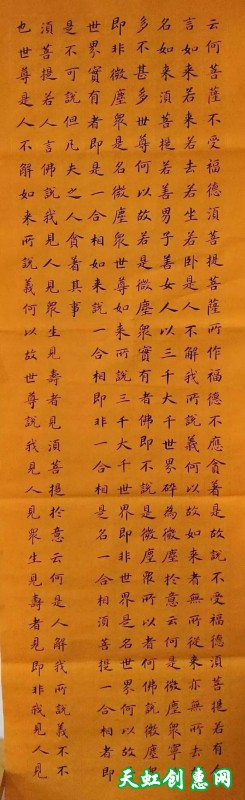 云何菩薩不受福德須菩提菩薩所作福德不應貪著是故說不受福德須菩提若有人
言如來若來若去若坐若臥是人不解我所說義何以故如來者無所從來亦無所去故
名如來須菩提若善男子善女人以三千大千世界碎為微塵於意云何是微塵眾寧為
多不甚多世尊何以故若是微塵眾實有者佛即不說是微塵眾所以者何佛說微塵眾
即非微塵眾是名微塵眾世尊如來所說三千大千世界即非世界是名世界何以故若
世界實有者即是一合相如來說一合相即非一合相是名一合相須菩提一合相者即
是不可說但凡夫之人貪著其事
須菩提若人言佛說我見人見眾生見壽者見須菩提於意云何是人解我所說義不不
也世尊是人不解如來所說義何以故世尊說我見人見眾生見壽者見即非我見人見
天虹创惠网